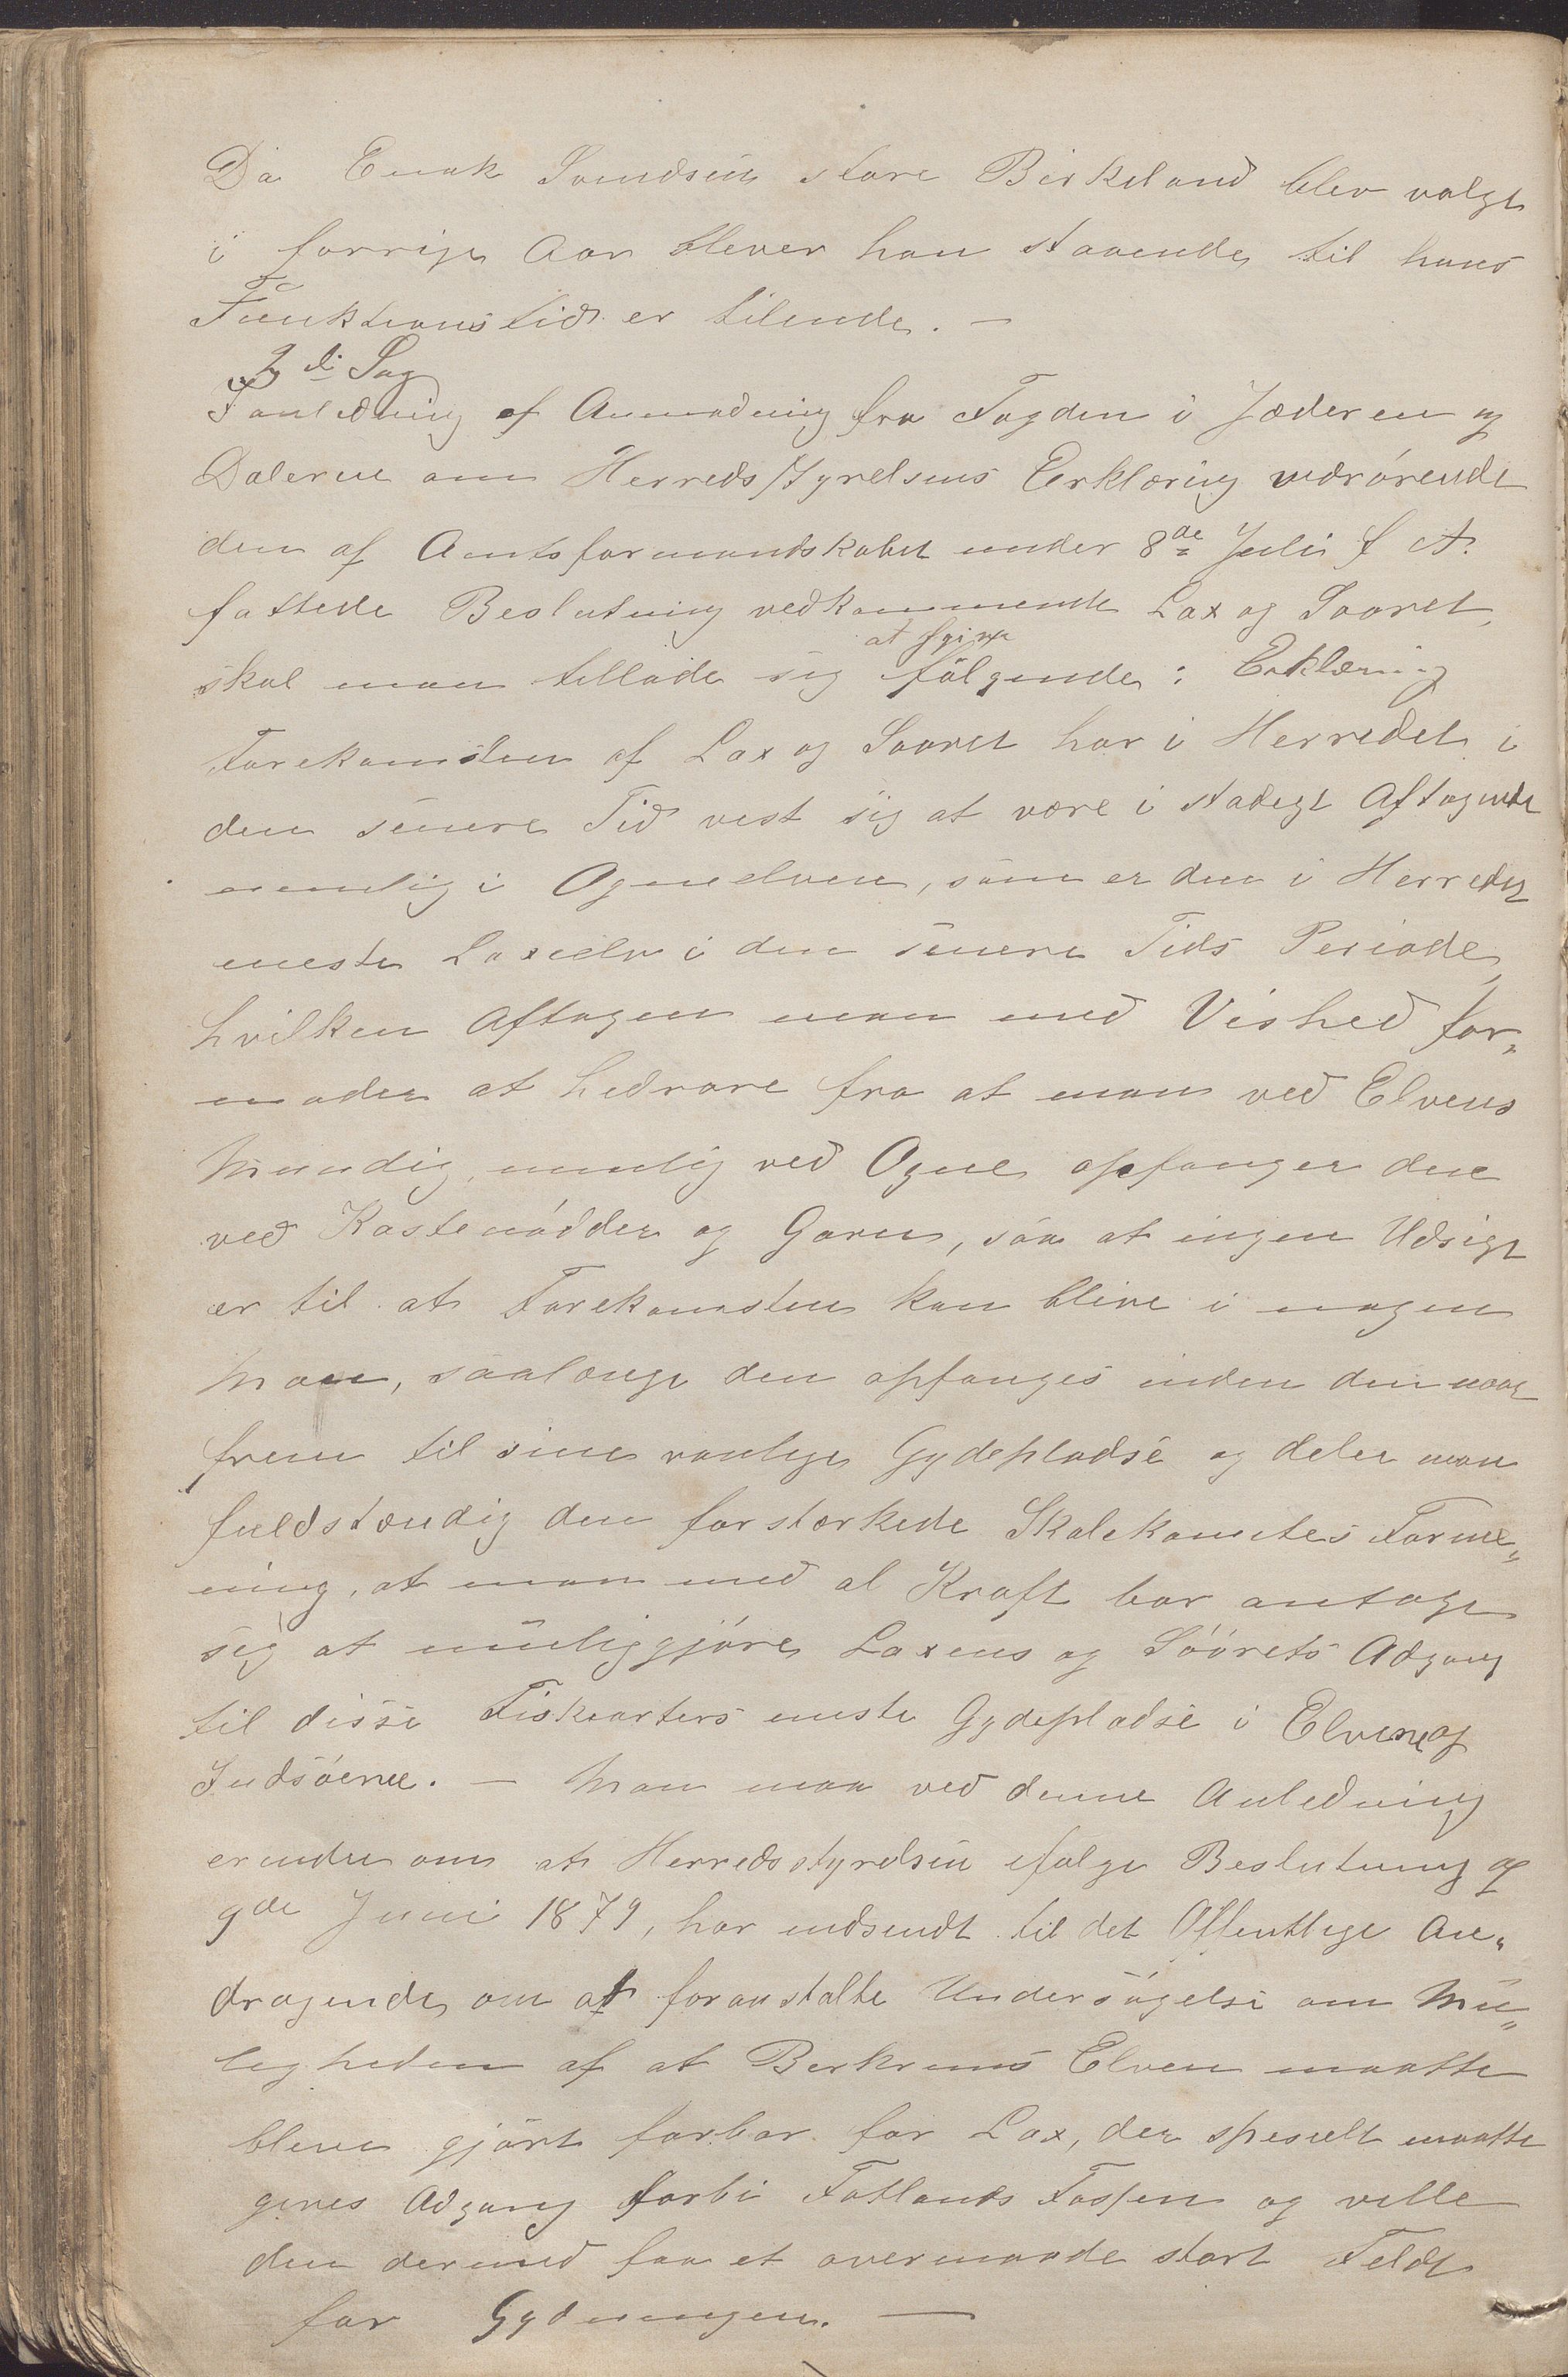 Da Enok Svendsen store Birkeland blev valgt
i forrige Aar blever han staaende til hans
Funktionstid er tilende. —
2 de Sag
I anledning af Anmodning fra Fogden i Jæderen og
Dalerne om Herredsstyrelsens Erklæring vedrørende
den af Amtsformandskabet under 8de Juli f A.
fattede Beslutning vedkommende Lax og Søøret,
skal man tillade sig at give følgende: Erklæring
Forekomsten af Lax og Søøret har i Herredet i
den senere Tid vest sig at være i stadegt Aftagende
nemlig i Ogneelven, som er den i Herredet
eneste Laxelv i den senere Tids Periode,
hvilken Aftagen man med Vished for„
moder at hedrøre fra at man ved Elvens
Munding, nemlig ved Ogne opfanger den
ved Kastenødder og Garn, saa at ingen Udsigt
er til at Forekomsten kan blive i nogen
Mon, saalænge den opfanges inden den naar
frem til sine vanlige Gydepladse og deler man
fuldstændig den forstærkede Skolekomites Forme„
ning, at man med al Kraft bør antage
sig at muliggjøre Laxens og Søørets Adgang
til disse Fiskearters eneste Gydepladse i Elvene og
Indsøerne. — Man maa ved denne Anledning
erindre om at Herredsstyrelsen ifølge Beslutning af
9de Juni 1879, har indsendt til det Offentlige An„
dragende om at foranstalte Undersøgelse om Mu„
ligheden af at Berkrems Elven maatte
bleve gjort farbar for Lax, der spesielt maatte
gives Adgang forbi Fotlands Fossen og ville
den dermed faa et overmaade stort Feldt
for Gydningen. —